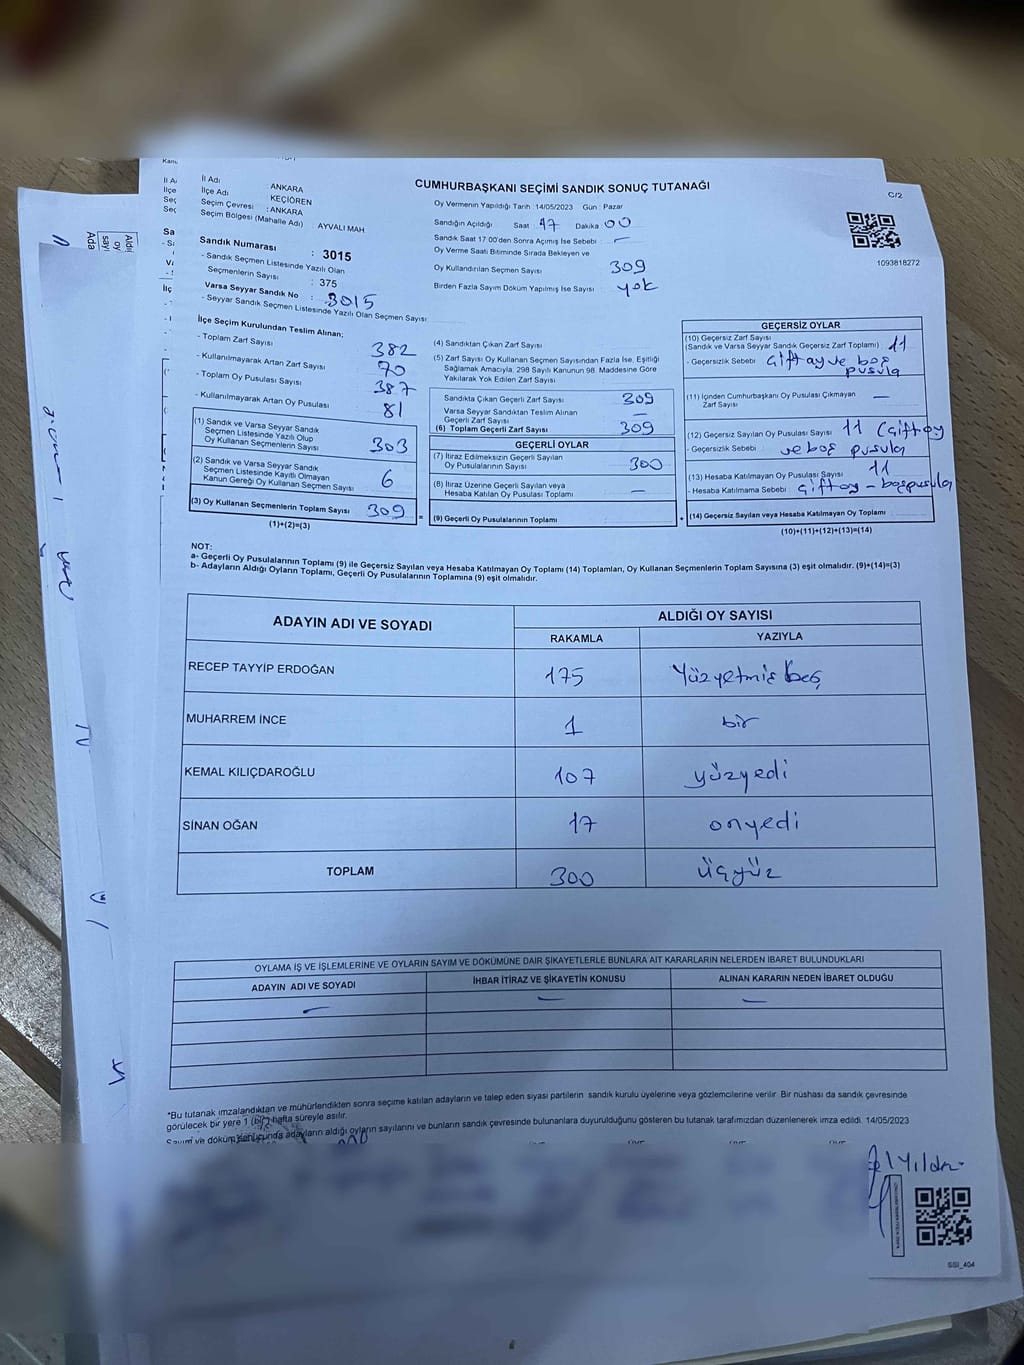 CUMHURBAŞKANI SEÇİMİ SANDIK SONUÇ TUTANAĞI
C/2
İl Adı : ANKARA
İlçe Adı : KEÇİÖREN
Seçim Çevresi : ANKARA
Seçim Bölgesi (Mahalle Adı) : AYVALI MAH
Sandık Numarası : 3015
- Sandık Seçmen Listesinde Yazılı Olan
Seçmenlerin Sayısı : 375
Varsa Seyyar Sandık No : 3015
- Seyyar Sandık Seçmen Listesinde Yazılı Olan Seçmen Sayısı
Oy Vermenin Yapıldığı Tarih : 14/05/2023 Gün : Pazar
Sandığın Açıldığı Saat 17 Dakika 00
Sandık Saat 17:00'den Sonra Açımış İse Sebebi –
Oy Verme Saati Bitiminde Sırada Bekleyen ve
Oy Kullandırılan Seçmen Sayısı 309
Birden Fazla Sayım Döküm Yapılmış İse Sayısı yok
1093818272
İlçe Seçim Kurulundan Teslim Alınan;
- Toplam Zarf Sayısı 382
- Kullanılmayarak Artan Zarf Sayısı 70
- Toplam Oy Pusulası Sayısı 387
- Kullanılmayarak Artan Oy Pusulası 81
(1) Sandık ve Varsa Seyyar Sandık
Seçmen Listesinde Yazılı Olup
Oy Kullanan Seçmenlerin Sayısı 303
(2) Sandık ve Varsa Seyyar Sandık
Seçmen Listesinde Kayıtlı Olmayan
Kanun Gereği Oy Kullanan Seçmen Sayısı 6
(3) Oy Kullanan Seçmenlerin Toplam Sayısı 309 =
(1)+(2)=(3)
(4) Sandıktan Çıkan Zarf Sayısı
(5) Zarf Sayısı Oy Kullanan Seçmen Sayısından Fazla İse, Eşitliği
Sağlamak Amacıyla, 298 Sayılı Kanunun 98. Maddesine Göre
Yakılarak Yok Edilen Zarf Sayısı
Sandıkta Çıkan Geçerli Zarf Sayısı 309
Varsa Seyyar Sandıktan Teslim Alınan
Geçerli Zarf Sayısı –
(6) Toplam Geçerli Zarf Sayısı 309
GEÇERLİ OYLAR
(7) İtiraz Edilmeksizin Geçerli Sayılan
Oy Pusulalarının Sayısı 300
(8) İtiraz Üzerine Geçerli Sayılan veya
Hesaba Katılan Oy Pusulası Toplamı –
(9) Geçerli Oy Pusulalarının Toplamı +
GEÇERSİZ OYLAR
(10) Geçersiz Zarf Sayısı
(Sandık ve Varsa Seyyar Sandık Geçersiz Zarf Toplamı) 11
- Geçersizlik Sebebi Çift oy ve boş
pusula
(11) İçinden Cumhurbaşkanı Oy Pusulası Çıkmayan
Zarf Sayısı –
(12) Geçersiz Sayılan Oy Pusulası Sayısı 11 (Çift oy
- Geçersizlik Sebebi ve boş pusula
(13) Hesaba Katılmayan Oy Pusulası Sayısı 11
- Hesaba Katılmama Sebebi çift oy – boş pusula
(14) Geçersiz Sayılan veya Hesaba Katılmayan Oy Toplamı
(10)+(11)+(12)+(13)=(14)
NOT:
a- Geçerli Oy Pusulalarının Toplamı (9) ile Geçersiz Sayılan veya Hesaba Katılmayan Oy Toplamı (14) Toplamları, Oy Kullanan Seçmenlerin Toplam Sayısına (3) eşit olmalıdır. (9)+(14)=(3)
b- Adayların Aldığı Oyların Toplamı, Geçerli Oy Pusulalarının Toplamına (9) eşit olmalıdır.
ADAYIN ADI VE SOYADI ALDIĞI OY SAYISI
RAKAMLA YAZIYLA
RECEP TAYYİP ERDOĞAN 175 Yüzyetmiş beş
MUHARREM İNCE 1 bir
KEMAL KILIÇDAROĞLU 107 yüzyedi
SİNAN OĞAN 17 onyedi
TOPLAM 300 üçyüz
OYLAMA İŞ VE İŞLEMLERİNE VE OYLARIN SAYIM VE DÖKÜMÜNE DAİR ŞİKAYETLERLE BUNLARA AİT KARARLARIN NELERDEN İBARET BULUNDUKLARI
ADAYIN ADI VE SOYADI İHBAR İTİRAZ VE ŞİKAYETİN KONUSU ALINAN KARARIN NEDEN İBARET OLDUĞU
– – –
*Bu tutanak imzalandıktan ve mühürlendikten sonra seçime katılan adayların ve talep eden siyasi partilerin sandık kurulu üyelerine veya gözlemcilerine verilir. Bir nüshası da sandık çevresinde
görülecek bir yere 1 (bir) hafta süreyle asılır.
Sayım ve döküm sonucunda adayların aldığı oyların sayılarını ve bunların sandık çevresinde bulunanlara duyurulduğunu gösteren bu tutanak tarafımızdan düzenlenerek imza edildi. 14/05/2023
SSI_404